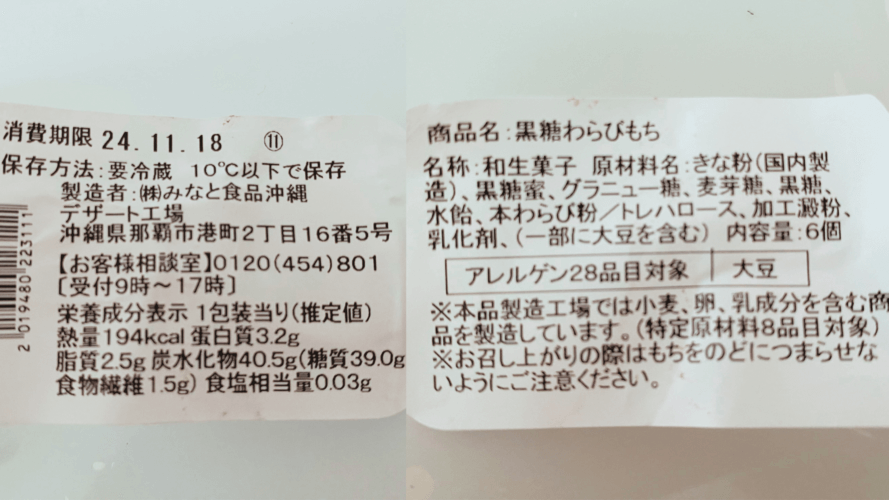 消費期限 24.11.18 ⑪
保存方法:要冷蔵 10℃以下で保存
製造者:㈱みなと食品沖縄
デザート工場
沖縄県那覇市港町2丁目16番5号
【お客様相談室】0120(454)801
[受付9時～17時]
栄養成分表示 1包装当り(推定値)
熱量194kcal 蛋白質3.2g
脂質2.5g 炭水化物40.5g(糖質39.0g
食物繊維1.5g) 食塩相当量0.03g
2 019480 223111
商品名:黒糖わらびもち
名称:和生菓子 原材料名:きな粉(国内製
造)、黒糖蜜、グラニュー糖、麦芽糖、黒糖、
水飴、本わらび粉/トレハロース、加工澱粉、
乳化剤、(一部に大豆を含む) 内容量:6個
アレルゲン28品目対象 大豆
※本品製造工場では小麦、卵、乳成分を含む商
品を製造しています。(特定原材料8品目対象)
※お召し上がりの際はもちをのどにつまらせな
いようにご注意ください。